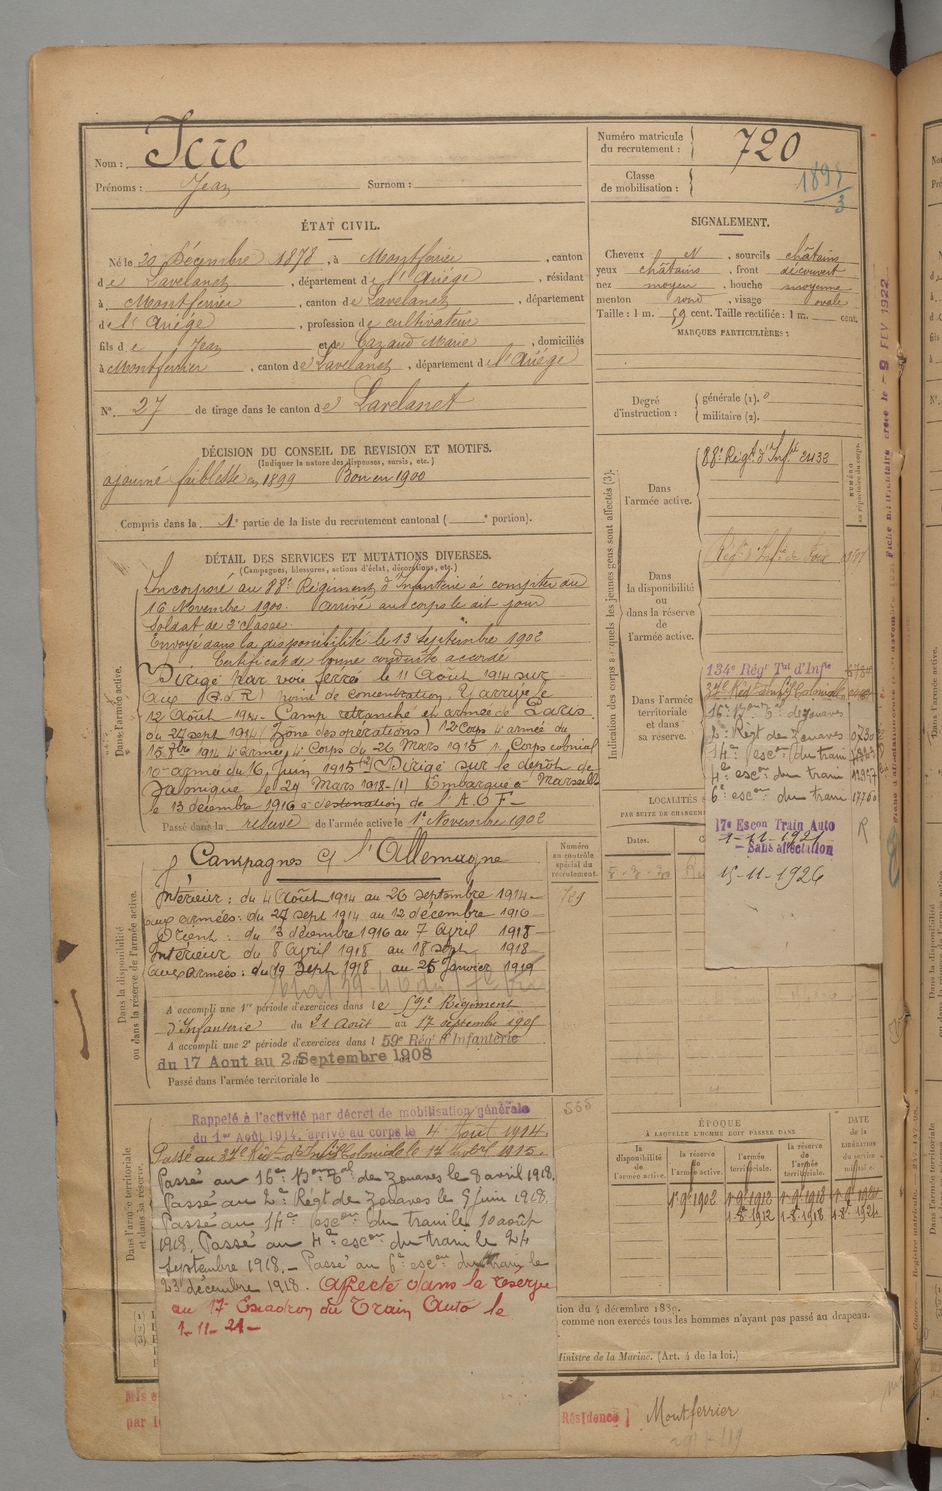 Nom : Icre
Prénoms : Jean Surnom :
Numéro matricule du recrutement : 720
Classe de mobilisation : 1895/3
ÉTAT CIVIL.
Né le 20 Décembre 1878, à Montferrier, canton
de Lavelanet, département de l'Ariége, résidant
à Montferrier, canton de Lavelanet, département
de l'Ariége, profession de cultivateur
fils de Jean et de Cazaud Marie, domiciliés
à Montferrier, canton de Lavelanet, département de l'Ariége
N° 27 de tirage dans le canton de Lavelanet
SIGNALEMENT.
Cheveux et N, sourcils châtains
yeux châtains, front découvert
nez moyen, bouche moyenne
menton rond, visage ovale
Taille : 1 m. 59 cent. Taille rectifiée : 1 m. cent.
MARQUES PARTICULIÈRES :
Degré d'instruction : générale (1). 0
militaire (2).
DÉCISION DU CONSEIL DE REVISION ET MOTIFS.
(Indiquer la nature des dispenses, sursis, etc.)
ajourné faiblesse en 1899 Bon en 1900
Compris dans la 1e partie de la liste du recrutement cantonal ( e portion).
DÉTAIL DES SERVICES ET MUTATIONS DIVERSES.
(Campagnes, blessures, actions d'éclat, décorations, etc.)
Dans l'armée active.
Incorporé au 88e Régiment d'Infanterie à compter du
16 Novembre 1900. Arrivé au corps le dit jour
Soldat de 2e classe.
Envoyé dans la disponibilité le 13 septembre 1902
Certificat de bonne conduite accordé
Dirigé par voie ferrée le 11 Août 1914 sur
point de concentration. Y arrivé le
12 Août 1914 - Camp retranché et armée de Paris
du 24 sept 1914 (Zône des opérations) 12 Corps 4 armée du
15 1914 4 armée 4 Corps du 26 Mars 1915 1e Corps colonial
10e armée du 16 Juin 1915 (2) Dirigé sur le dépôt de
Salonique le 24 Mars 1918 - (1) Embarqué à Marseille
le 13 décembre 1916 à destination de l'A O F -
Passé dans la réserve de l'armée active le 1e Novembre 1902
Dans la disponibilité ou dans la réserve de l'armée active.
Numéro au contrôle spécial du recrutement.
Campagnes C/ l'Allemagne
Intérieur : du 4 Août 1914 au 26 septembre 1914 -
aux armées : du 27 sept 1914 au 12 décembre 1916 -
Orient : du 13 décembre 1916 au 7 Avril 1918 -
Intérieur du 8 Avril 1918 au 18 sept 1918 -
aux Armées : du 19 Sept 1918 au 25 Janvier 1919
A accompli une 1re période d'exercices dans le 59e Régiment
d'Infanterie du 21 Août au 17 septembre 1905
A accompli une 2e période d'exercices dans l 59e Régt d'Infanterie
du 17 Aout au 2 Septembre 1908
Passé dans l'armée territoriale le
Dans l'armée territoriale et dans sa réserve.
Rappelé à l'activité par décret de mobilisation générale
du 1er Août 1914, arrivé au corps le 4 Août 1914
Passé au 37e Régt d'Infie Coloniale le 1915.
Passé au 16e Bon Tal de Zouaves le 3 avril 1918.
Passé au 2e Régt de Zouaves le 9 juin 1918.
Passé au 14e escon du train le 10 août
1918. Passé au 4e escon du train le 24
septembre 1918. - Passé au 6e escon du train le
23 décembre 1918. Affecté dans la réserve
au 17e Escadron du Train Auto le
1-11-21-
Indication des corps auxquels les jeunes gens sont affectés (3).
Dans l'armée active.
88e Régt d'Infie 2433
Dans la disponibilité ou dans la réserve de l'armée active.
Régt d'Infie de Foix
Dans l'armée territoriale et dans sa réserve.
134e Régt Tal d'Infie
37e Régt Infie Coloniale
16e Bon T. de Zouaves
2e Régt de Zouaves
14e escon du train
4e escon du train
6e escon du train 17760
17e Escon Train Auto
1-11-1921
- Sans affectation
15-11-1926
R
LOCALITÉS
PAR SUITE DE CHANGEM
Dates.
ÉPOQUE
À LAQUELLE L'HOMME DOIT PASSER DANS
la disponibilité de l'armée active.
la réserve de l'armée active.
l'armée territoriale.
la réserve de l'armée territoriale.
DATE de la LIBÉRATION du service militaire.
1e 9e 1902
1-8-1912 1-8-1918 1-8-1924
Fiche matriculaire créée le - 9 FEV 1922
tion du 4 décembre 1889.
comme non exercés tous les hommes n'ayant pas passé au drapeau.
Ministre de la Marine. (Art. 4 de la loi.)
Résidence] Montferrier